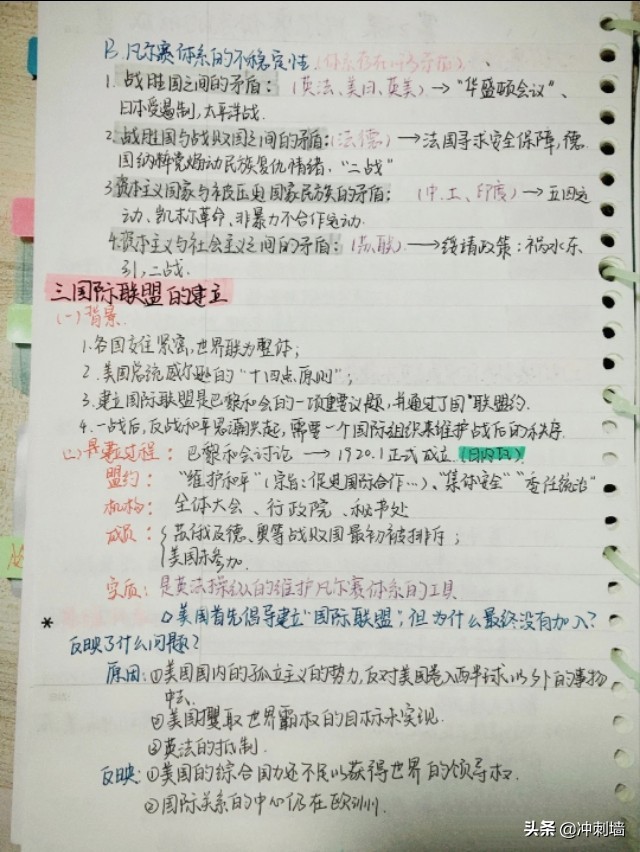 B. 凡尔赛体系的不稳定性 (体系存在的矛盾)
1. 战胜国之间的矛盾：(英法、美日、英美) → "华盛顿会议"、
日本受遏制, 太平洋战.
2. 战胜国与战败国之间的矛盾: (法德) → 法国寻求安全保障, 德
国纳粹党煽动民族复仇情绪. "二战"
3. 资本主义国家与被压迫国家民族的矛盾； (中. 土. 印度) → 五四运
动、凯末尔革命、非暴力不合作运动.
4. 资本主义与社会主义之间的矛盾： (苏联) → 绥靖政策：祸水东
引, 二战.
三国际联盟的建立
(一) 背景.
1. 各国交往紧密, 世界联为整体；
2. 美国总统威尔逊的"十四点原则"；
3. 建立国际联盟是巴黎和会的一项重要议题, 并通过了国"联盟约.
4. 一战后, 反战和平思潮兴起, 需要一个国际组织来维护战后的和秩序.
(二) 建立过程： 巴黎和会讨论 → 1920.1正式成立 (日内瓦)
盟约： "维护和平" (宗旨：促进国际合作…)、"集体安全" "委任统治"
机构： 全体大会、行政院、秘书处
成员： 苏俄及德、奥等战败国最初被排斥；
美国未参加.
实质： 是英法操纵的维护凡尔赛体系的工具
* 美国首先倡导建立"国际联盟", 但为什么最终没有加入？
反映了什么问题？
原因: ①美国国内的孤立主义的势力, 反对美国卷入西半球以外的事物
中去.
②美国攫取世界霸权的目标未实现.
③英法的抵制.
反映: ①美国的综合国力还不足以获得世界的领导权.
②国际关系的中心仍在欧洲.
头条 @冲刺墙